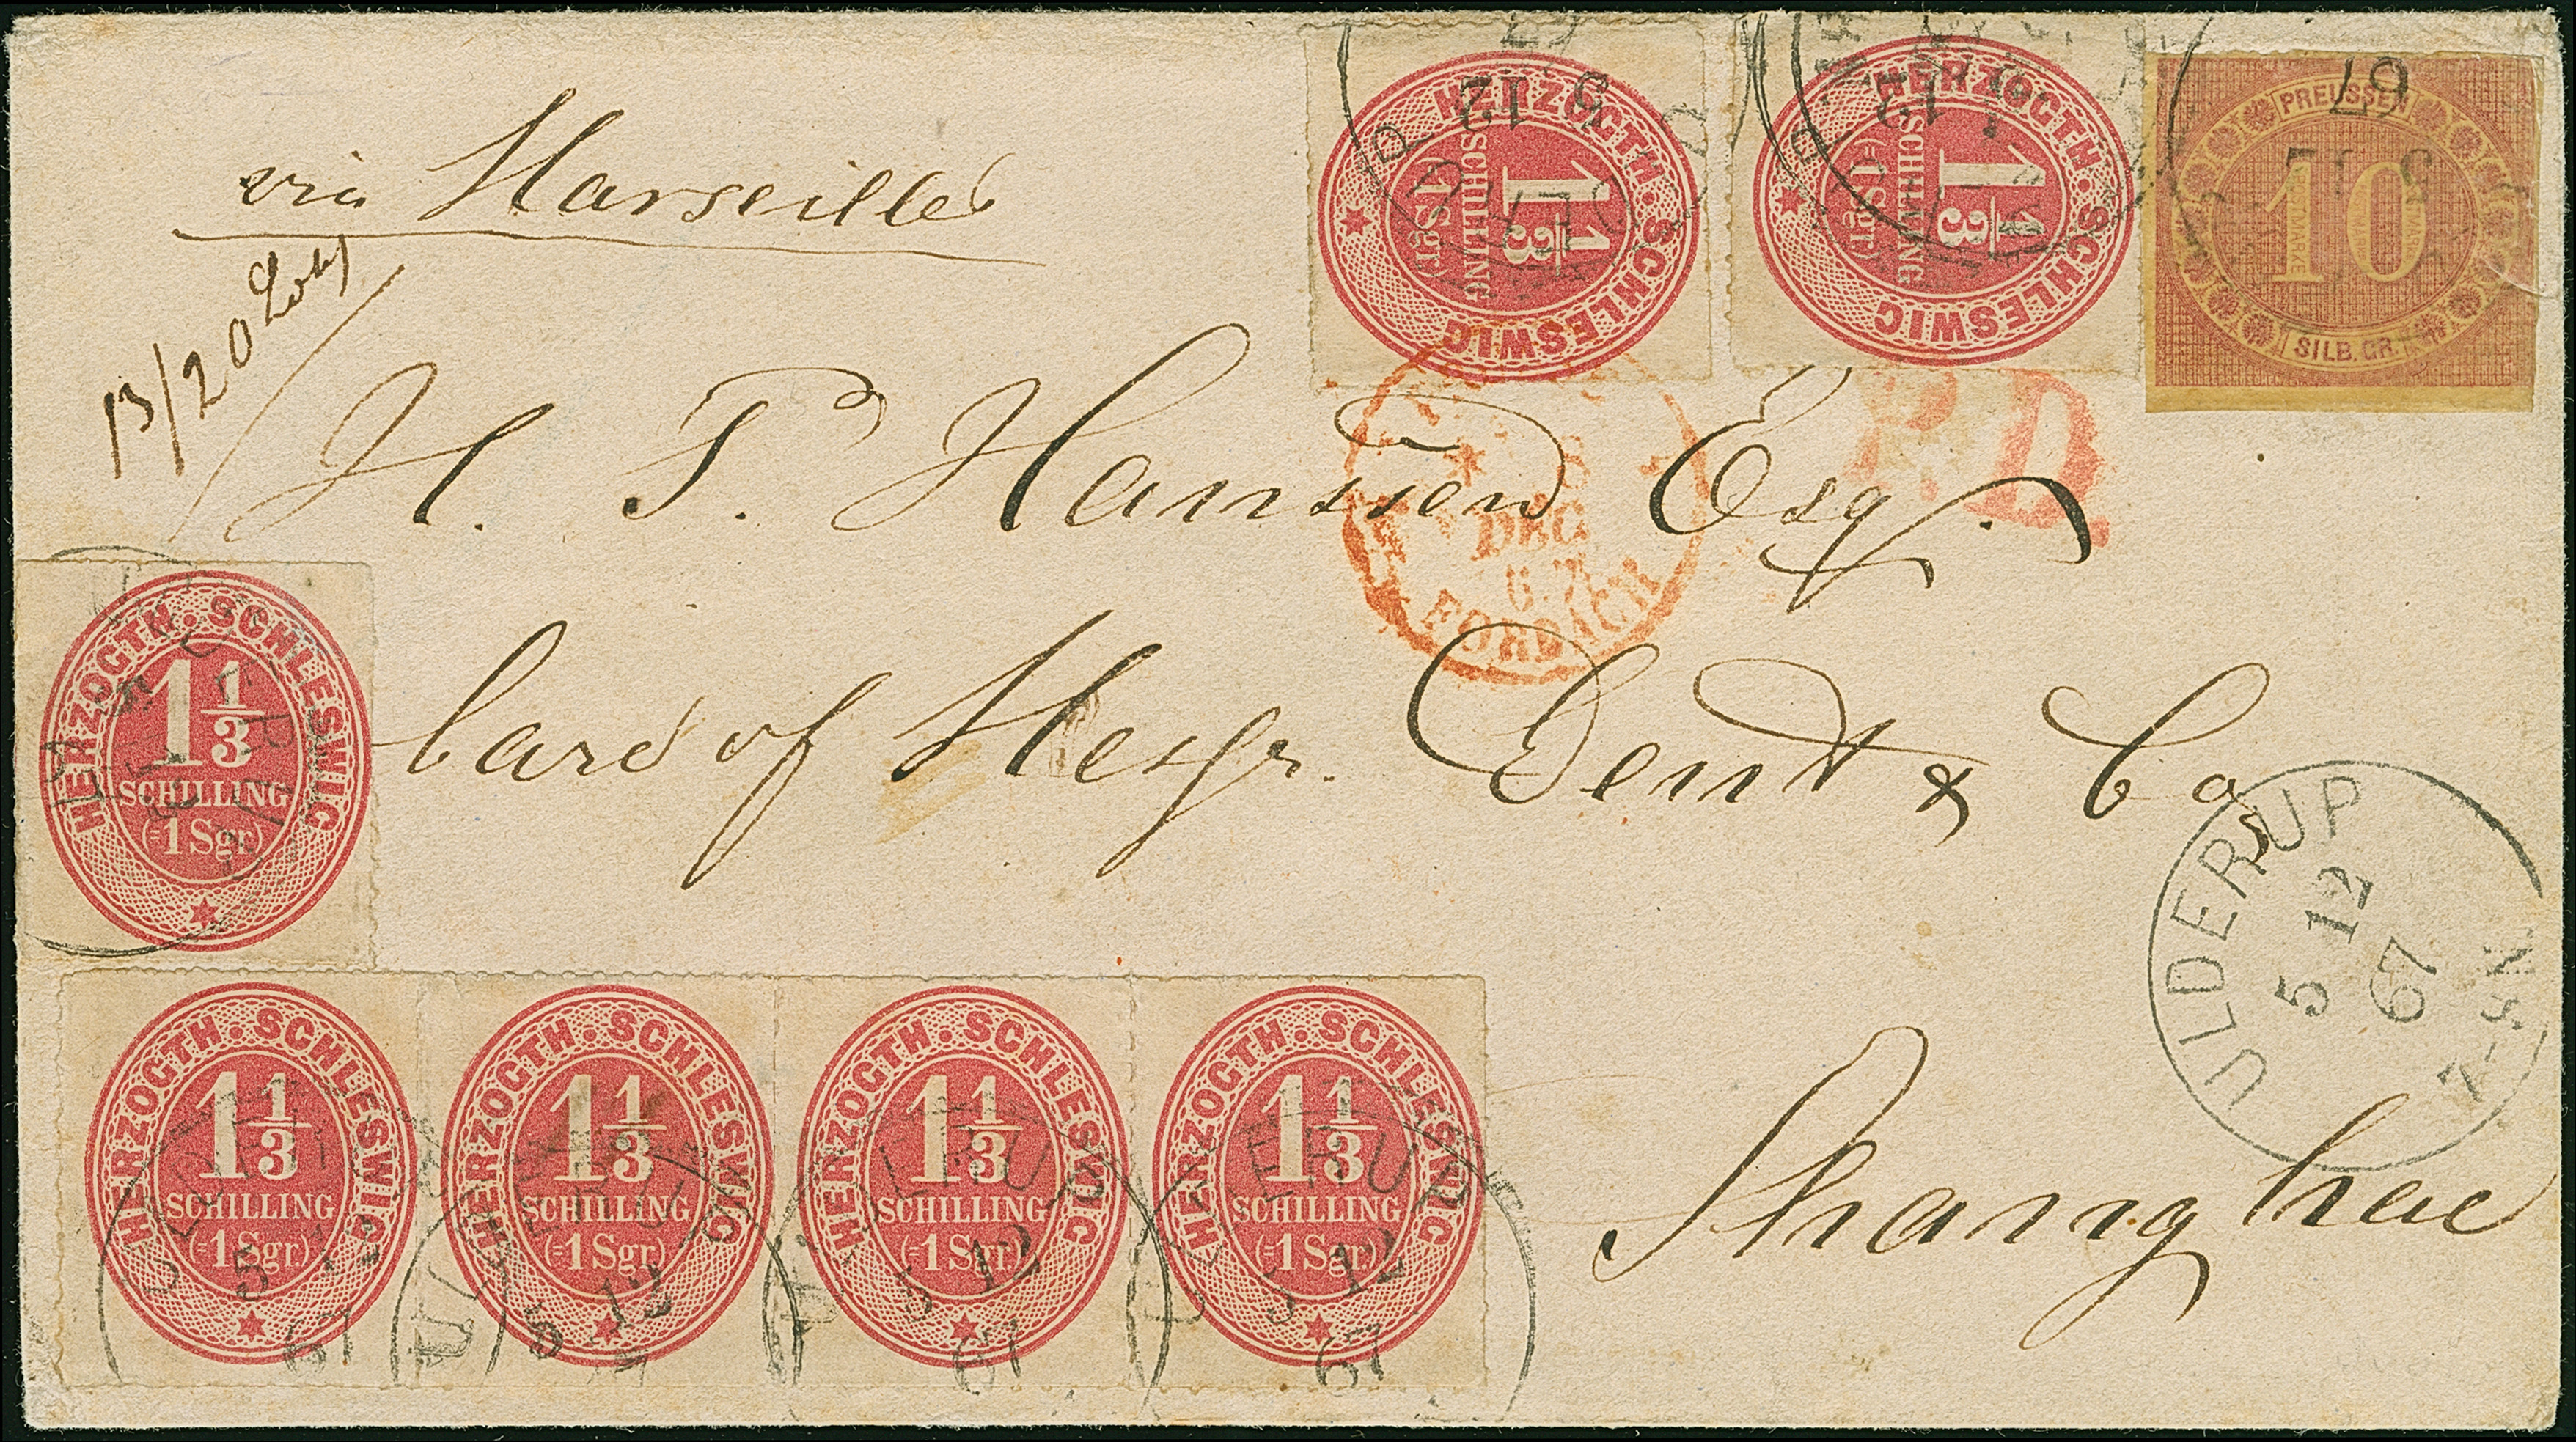 via Marseilles
13/20 Loth
H. P. Hanssen Esq.
Care of Messrs. Dent & Co
Shanghae
HERZOGTH. SCHLESWIG
1 1/3
SCHILLING
(=1 Sgr.)
HERZOGTH. SCHLESWIG
1 1/3
SCHILLING
(=1 Sgr.)
PREUSSEN
10
SILB. GR.
67
P.D.
DEC
67
FORBACH
HERZOGTH. SCHLESWIG
1 1/3
SCHILLING
(=1 Sgr.)
ULDERUP
5 12
67
HERZOGTH. SCHLESWIG
1 1/3
SCHILLING
(=1 Sgr.)
5
67
HERZOGTH. SCHLESWIG
1 1/3
SCHILLING
(=1 Sgr.)
5 12
HERZOGTH. SCHLESWIG
1 1/3
SCHILLING
(=1 Sgr.)
5 12
67
HERZOGTH. SCHLESWIG
1 1/3
SCHILLING
(=1 Sgr.)
5 12
67